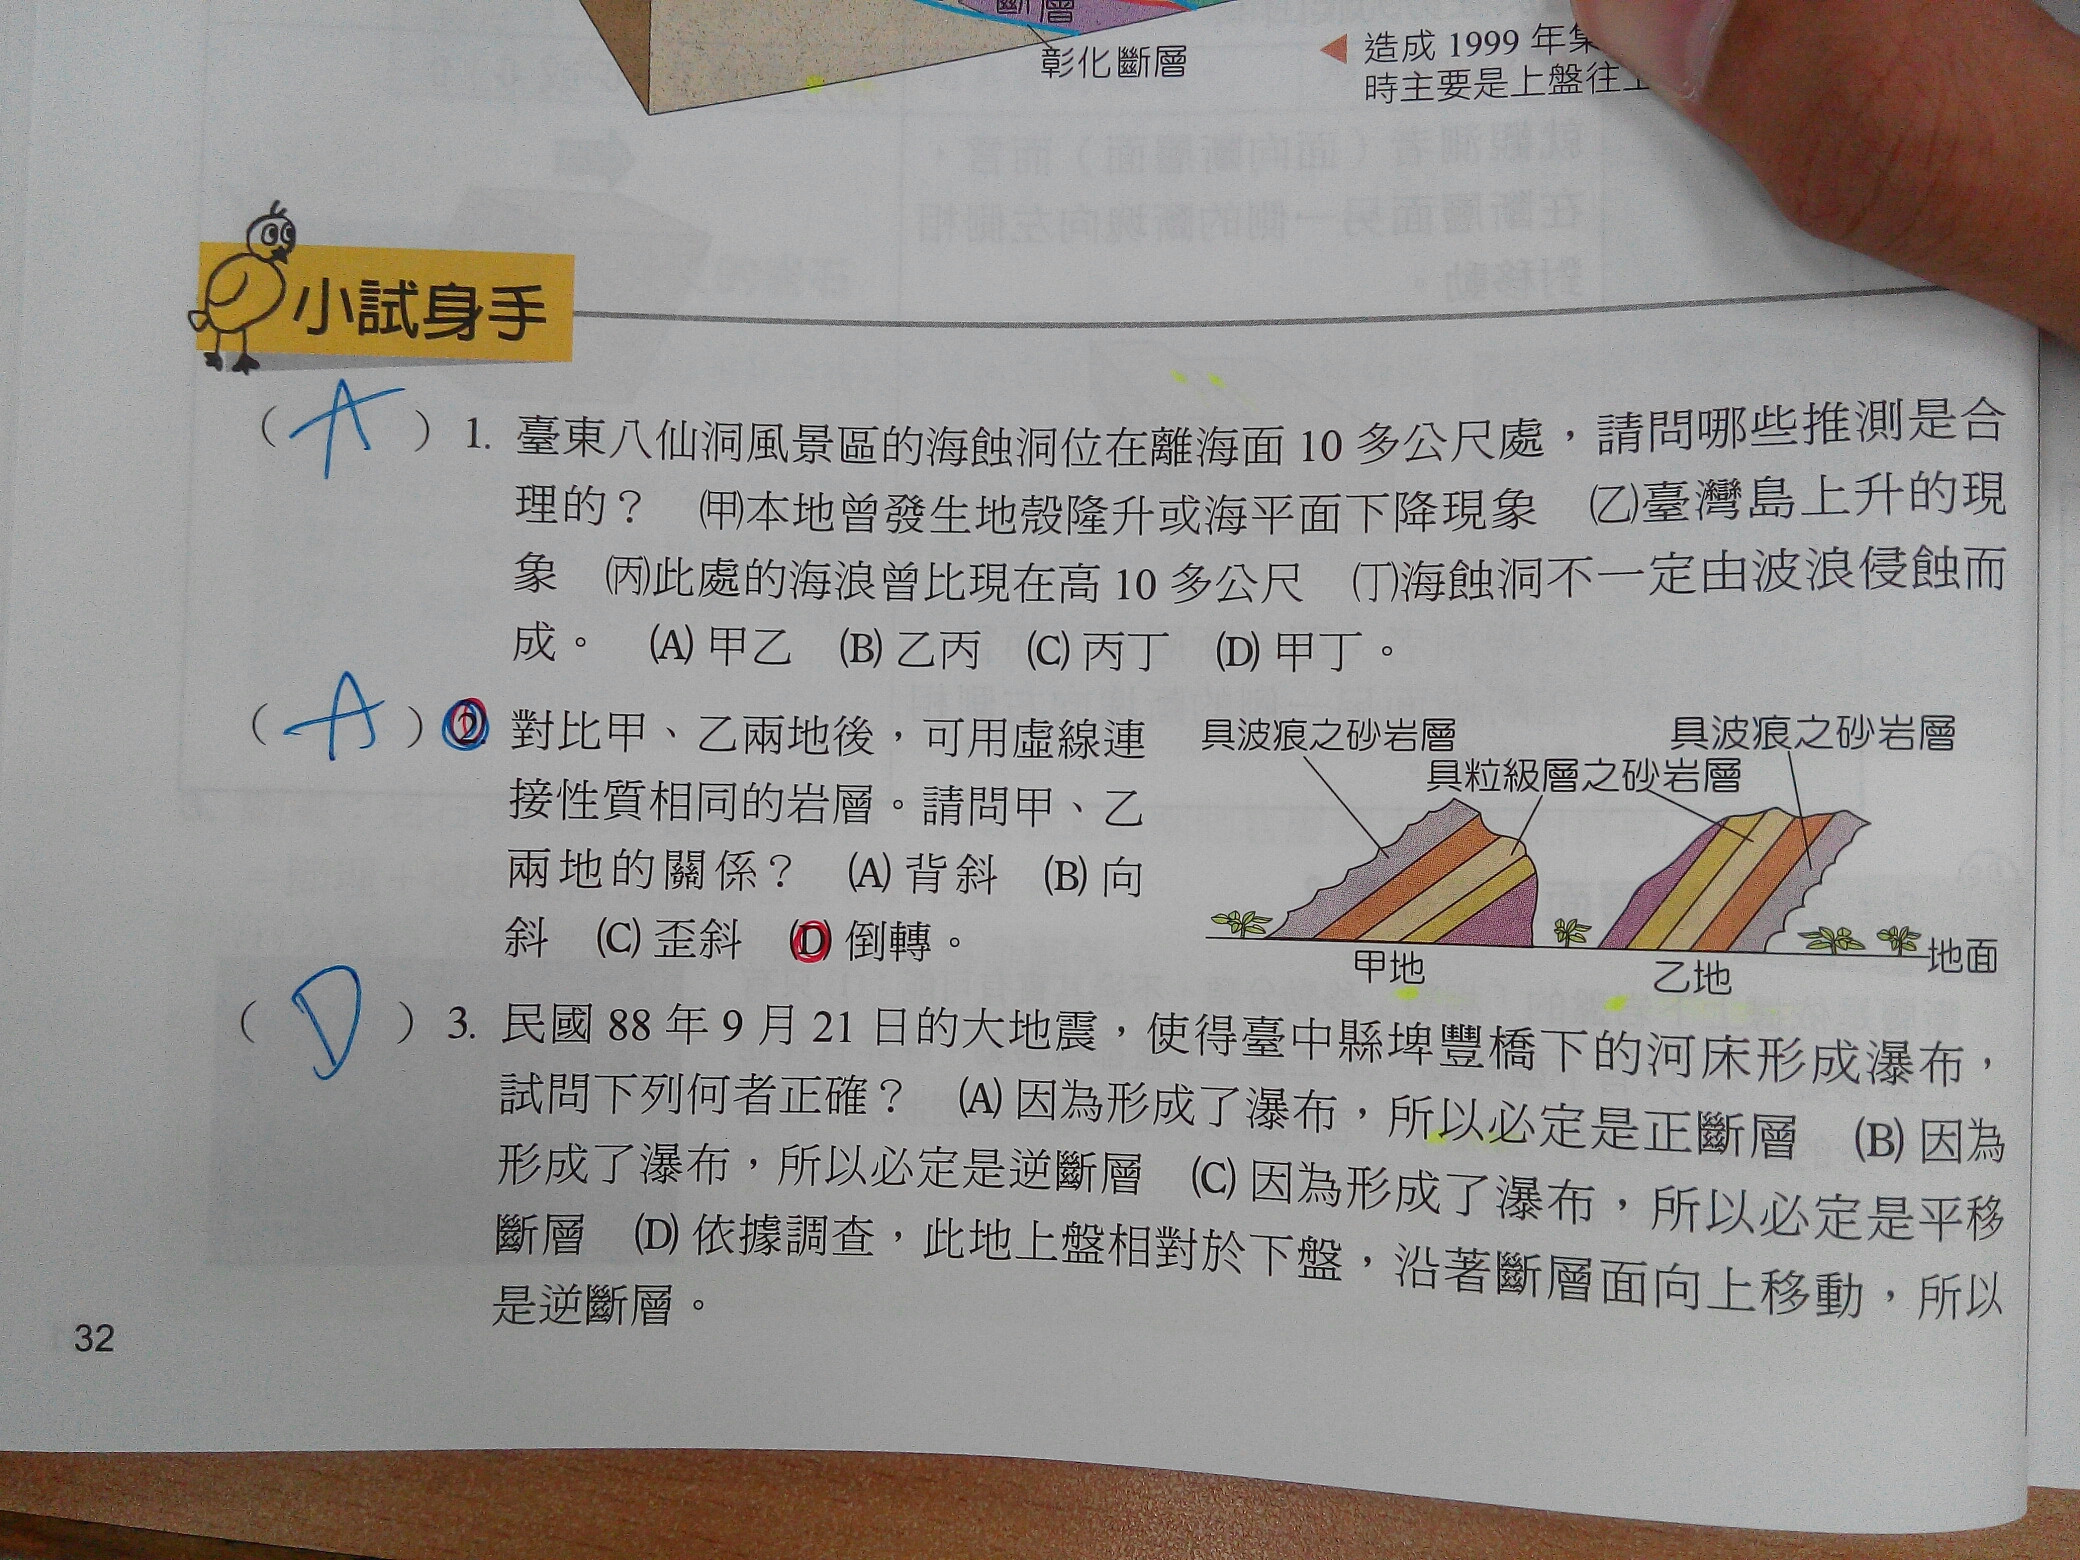 斷層
彰化斷層
造成 1999 年集
時主要是上盤往上
小試身手
( A ) 1. 臺東八仙洞風景區的海蝕洞位在離海面 10 多公尺處，請問哪些推測是合
理的？ ㈙本地曾發生地殼隆升或海平面下降現象 (乙)臺灣島上升的現
象 (丙)此處的海浪曾比現在高 10 多公尺 (丁)海蝕洞不一定由波浪侵蝕而
成。 (A) 甲乙 (B) 乙丙 (C) 丙丁 (D) 甲丁。
( A ) 2. 對比甲、乙兩地後，可用虛線連
接性質相同的岩層。請問甲、乙
兩地的關係？ (A) 背斜 (B) 向
斜 (C) 歪斜 (D) 倒轉。
具波痕之砂岩層
具粒級層之砂岩層
具波痕之砂岩層
甲地
乙地
地面
( D ) 3. 民國 88 年 9 月 21 日的大地震，使得臺中縣埤豐橋下的河床形成瀑布，
試問下列何者正確？ (A) 因為形成了瀑布，所以必定是正斷層 (B) 因為
形成了瀑布，所以必定是逆斷層 (C) 因為形成了瀑布，所以必定是平移
斷層 (D) 依據調查，此地上盤相對於下盤，沿著斷層面向上移動，所以
是逆斷層。
32